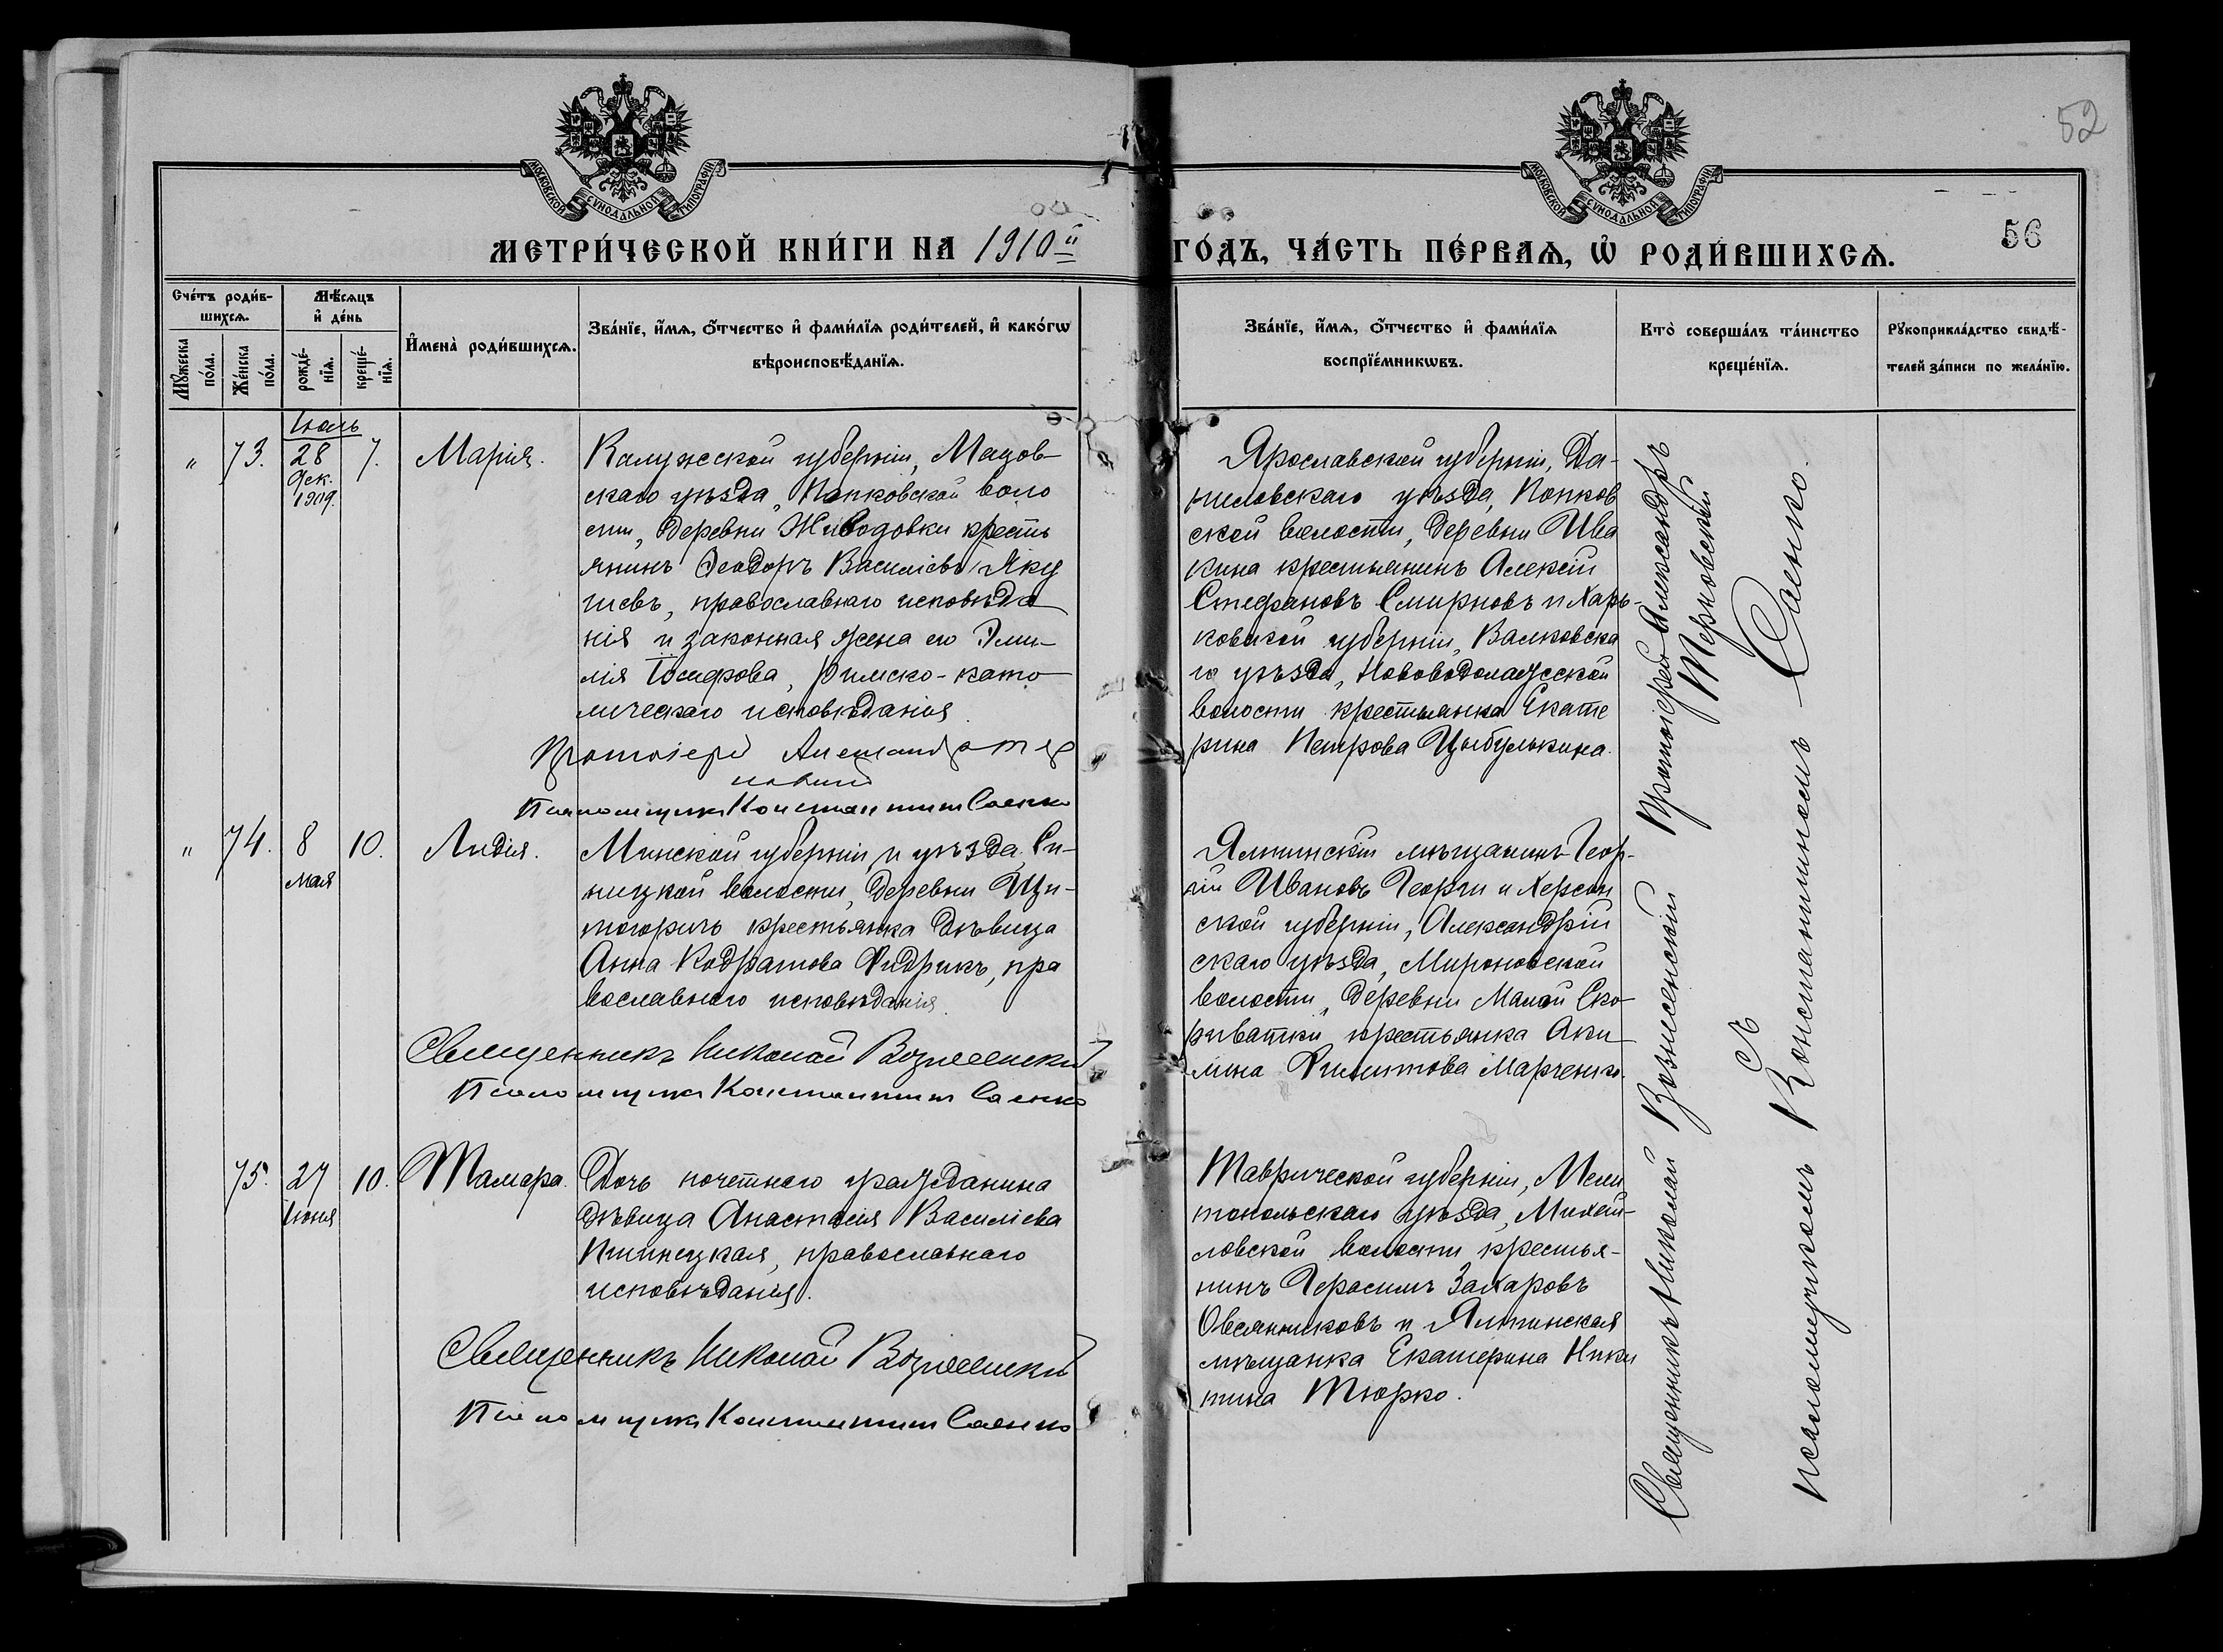 52
МОСКОВСКОЙ СѴНОДАЛЬНОЙ ТИПОГРАФІИ
МОСКОВСКОЙ СѴНОДАЛЬНОЙ ТИПОГРАФІИ
МЕТРИ́ЧЕСКОЙ КНИ́ГИ НА 1910й ГО́ДЪ, ЧА́СТЬ ПЕ́РВАѦ, Ѽ РОДИ́ВШИХСѦ.
56
Сче́тъ роди́в-
шихсѧ.
Мꙋ́жеска по́ла.
Же́нска по́ла.
Мѣ́сѧцъ
и҆ де́нь
рожде́-
нїѧ.
креще́-
нїѧ.
И҆мена̀ роди́вшихсѧ.
Зва́нїе, и҆́мѧ, ѻ҆́тчество и҆ фами́лїѧ роди́телей, и҆ како́гѡ
вѣроисповѣ́данїѧ.
Зва́нїе, и҆́мѧ, ѻ҆́тчество и҆ фами́лїѧ
воспрїе́мникѡвъ.
Кто̀ соверша́лъ та́инство
креще́нїѧ.
Рꙋкоприкла́дство свидѣ́-
телей за́писи по жела́нїю.
Іюль
" 73. 28 Дек. 1909. 7. Марія.
Калужской губерніи, Мацов-
скаго уѣзда, Попковской воло
сти, деревни Живодовки кресть
янинъ Ѳеодоръ Василіевъ Яку
шевъ, православнаго исповѣда
нія и законная жена его Эми-
лія Іосифова, римско-като
лическаго исповѣданія.
Протоіерей Александръ Тер
новскій
Псаломщикъ Константинъ Саенко
Ярославской губерніи, Да-
ниловскаго уѣзда, Попков
ской волости, деревни Ива
кина крестьянинъ Алексій
Стефановъ Смирновъ и Харь-
ковской губерніи, Валковска
го уѣзда, Нововодолажской
волости крестьянка Екате
рина Петрова Цыбулькина.
" 74. 8 мая 10. Лидія.
Минской губерніи и уѣзда, Си-
ницкой волости, деревни
крестьянка дѣвица
Анна Кодратова Фидрикъ, пра
вославнаго исповѣданія.
Священникъ Николай Вознесенскій
Псаломщикъ Константинъ Саенко
Ялтинскій мѣщанинъ Геор-
гій Ивановъ Георги и Херсон
ской губерніи, Александрій
скаго уѣзда, Мироновской
волости, деревни Малой Ско-
риватки крестьянка Аки-
лина Филиппова Марченко.
75. 27 Іюня 10. Тамара.
Дочь почетнаго гражданина
дѣвица Анастасія Василіева
Пшинецкая, православнаго
исповѣданія.
Священникъ Николай Вознесенскій
Псаломщикъ Константинъ Саенко
Таврической губерніи, Мели
топольскаго уѣзда, Михай-
ловской волости крестья-
нинъ Герасимъ Захаровъ
Овсянниковъ и Ялтинская
мѣщанка Екатерина Ники
тина Тюрко.
Протоіерей Александръ
Терновскій
Священникъ Николай Вознесенскій
съ
псаломщикомъ Константиномъ Саенко.